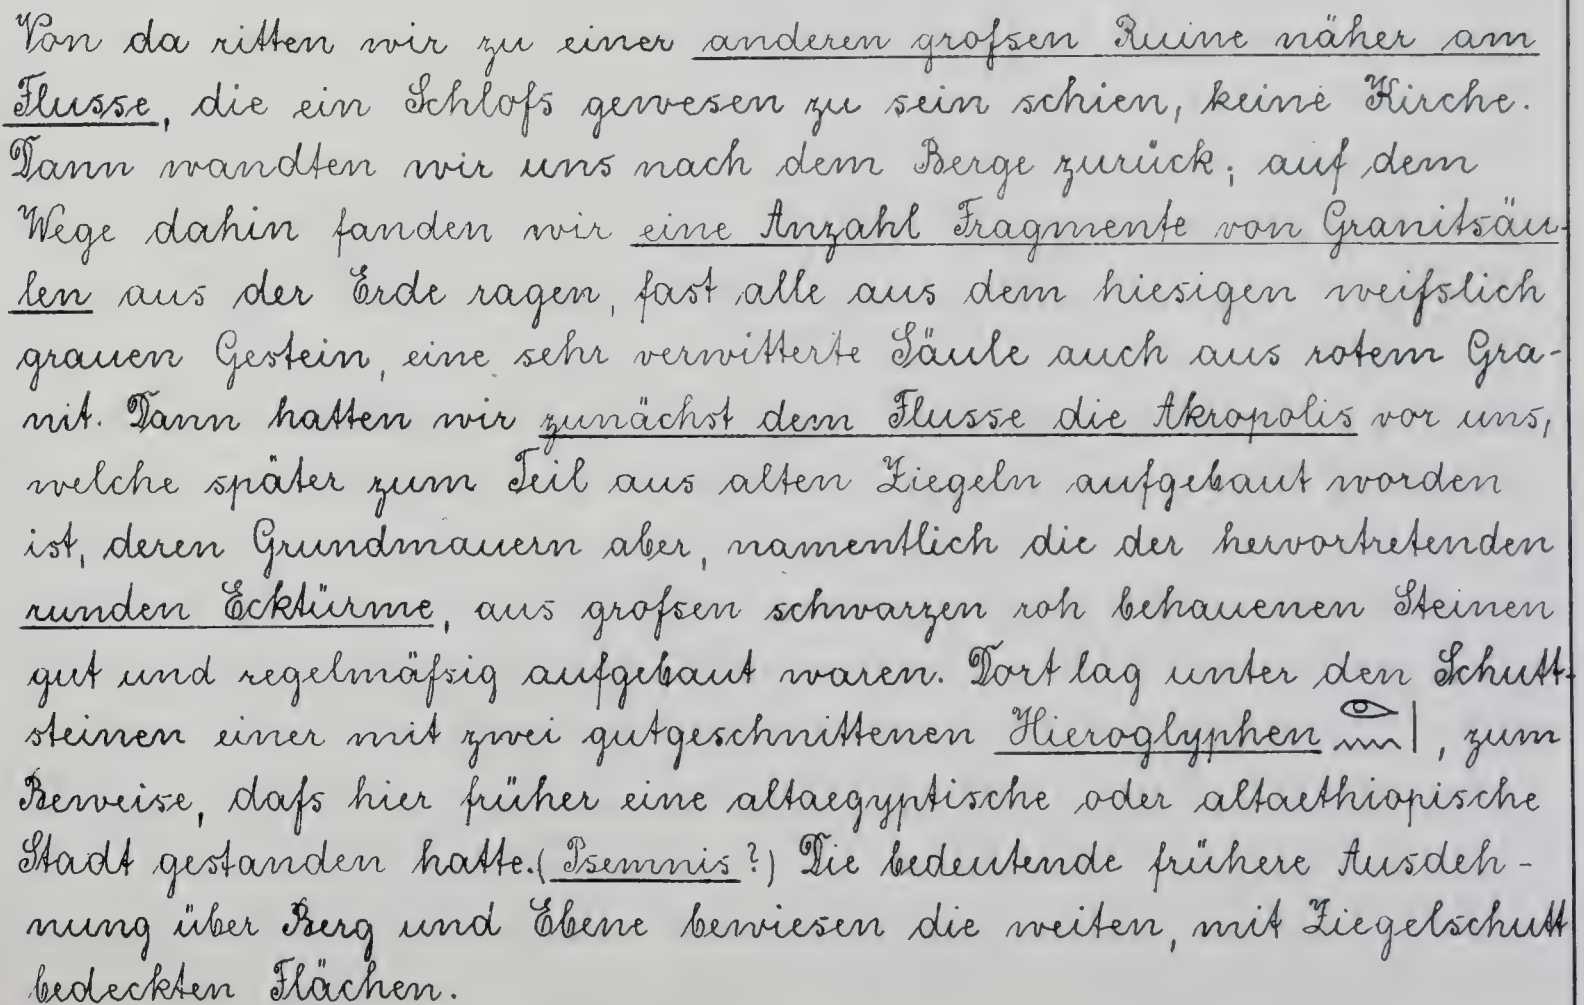 Von da ritten wir zu einer anderen grofsen Ruine näher am
Flusse, die ein Schlofs gewesen zu sein schien, keine Kirche.
Dann wandten wir uns nach dem Berge zurück; auf dem
Wege dahin fanden wir eine Anzahl Fragmente von Granitsäu-
len aus der Erde ragen, fast alle aus dem hiesigen weifslich
grauen Gestein, eine sehr verwitterte Säule auch aus rotem Gra-
nit. Dann hatten wir zunächst dem Flusse die Akropolis vor uns,
welche später zum Teil aus alten Ziegeln aufgebaut worden
ist, deren Grundmauern aber, namentlich die der hervortretenden
runden Ecktürme, aus grofsen schwarzen roh behauenen Steinen
gut und regelmäfsig aufgebaut waren. Dort lag unter den Schutt-
steinen einer mit zwei gutgeschnittenen Hieroglyphen 𓁹𓈖𓏤, zum
Beweise, dafs hier früher eine altaegyptische oder altaethiopische
Stadt gestanden hatte. (Psemnis?) Die bedeutende frühere Ausdeh-
nung über Berg und Ebene bewiesen die weiten, mit Ziegelschutt
bedeckten Flächen.